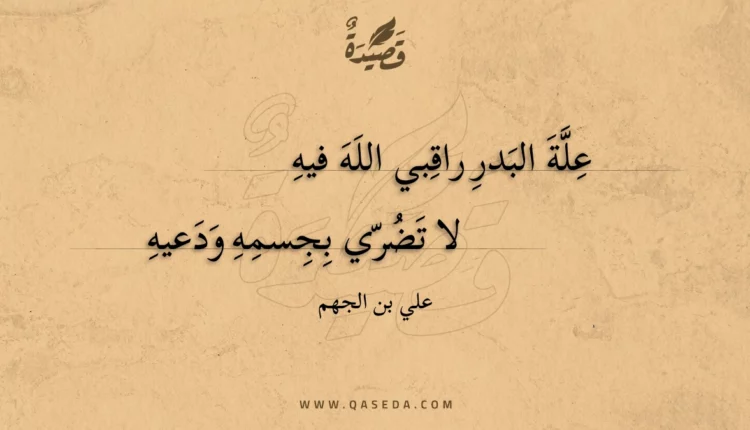 قَصِيْدَةٌ
عِلَّةَ البَدرِ راقِبي اللَهَ فيهِ
لا تَضُرّي بِجِسمِهِ وَدَعيهِ
علي بن الجهم
WWW.QASEDA.COM